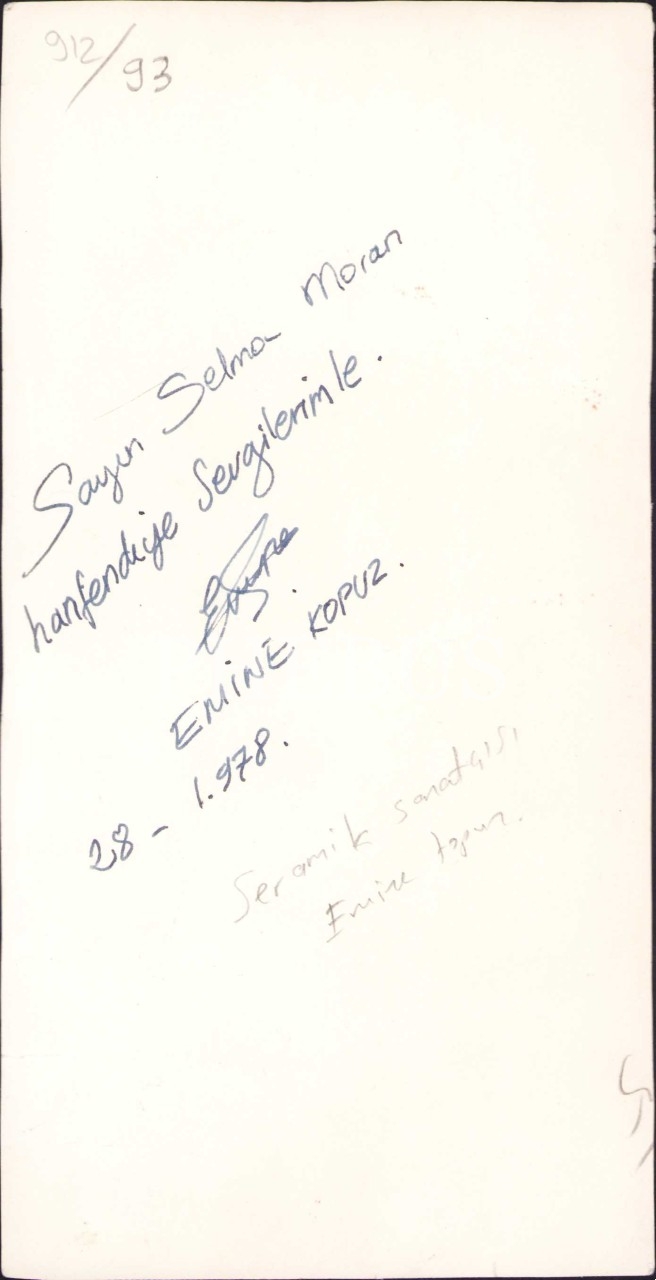 912/93
Sayın Selma Moran
hanfendiye Sevgilerimle.
Emine
EMİNE KOPUZ.
28 - 1.978.
Seramik sanatçısı
Emine